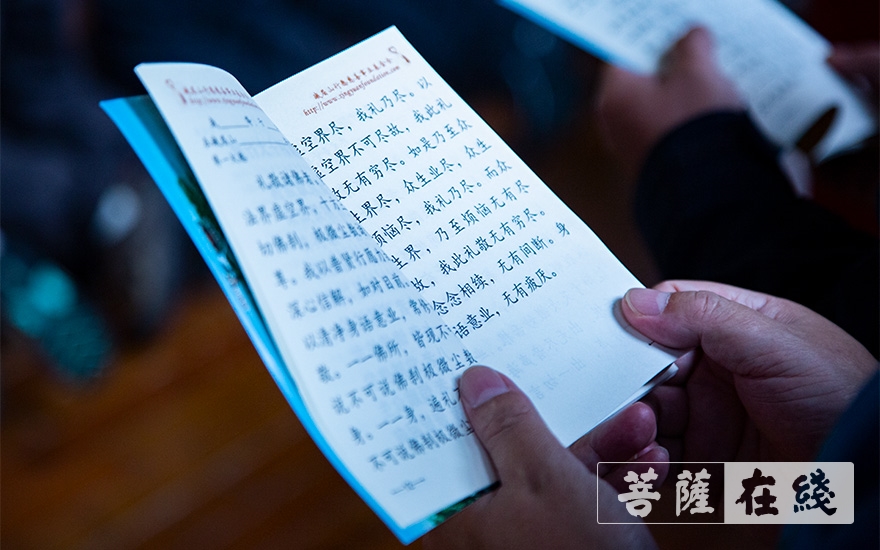 http://www.xingyuanfoundation.com
一、礼敬诸佛
法界虚空界，十方
切佛刹，极微尘数
尊。我以普贤行愿力
深心信解，如对目前，
以清净身语意业，常修
敬。一一佛所，皆现不
说不可说佛刹极微尘数
身。一一身，遍礼不
不可说佛刹极微尘
http://www.xingyuanfoundation.com
虚空界尽，我礼乃尽。以
虚空界不可尽故，我此礼
敬无有穷尽。如是乃至众
生界尽，众生业尽，众生
烦恼尽，我礼乃尽。而众
生界，乃至烦恼无有尽
故，我此礼敬无有穷尽。
念念相续，无有间断。身
语意业，无有疲厌。
菩薩在綫